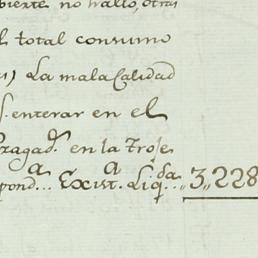 vierte no hallo, otras
l total consumo
s) La mala Calidad
s. enterar en el
tragad.s en la Troje
pond.a... Exist.a Liq.da ,, 3,,228